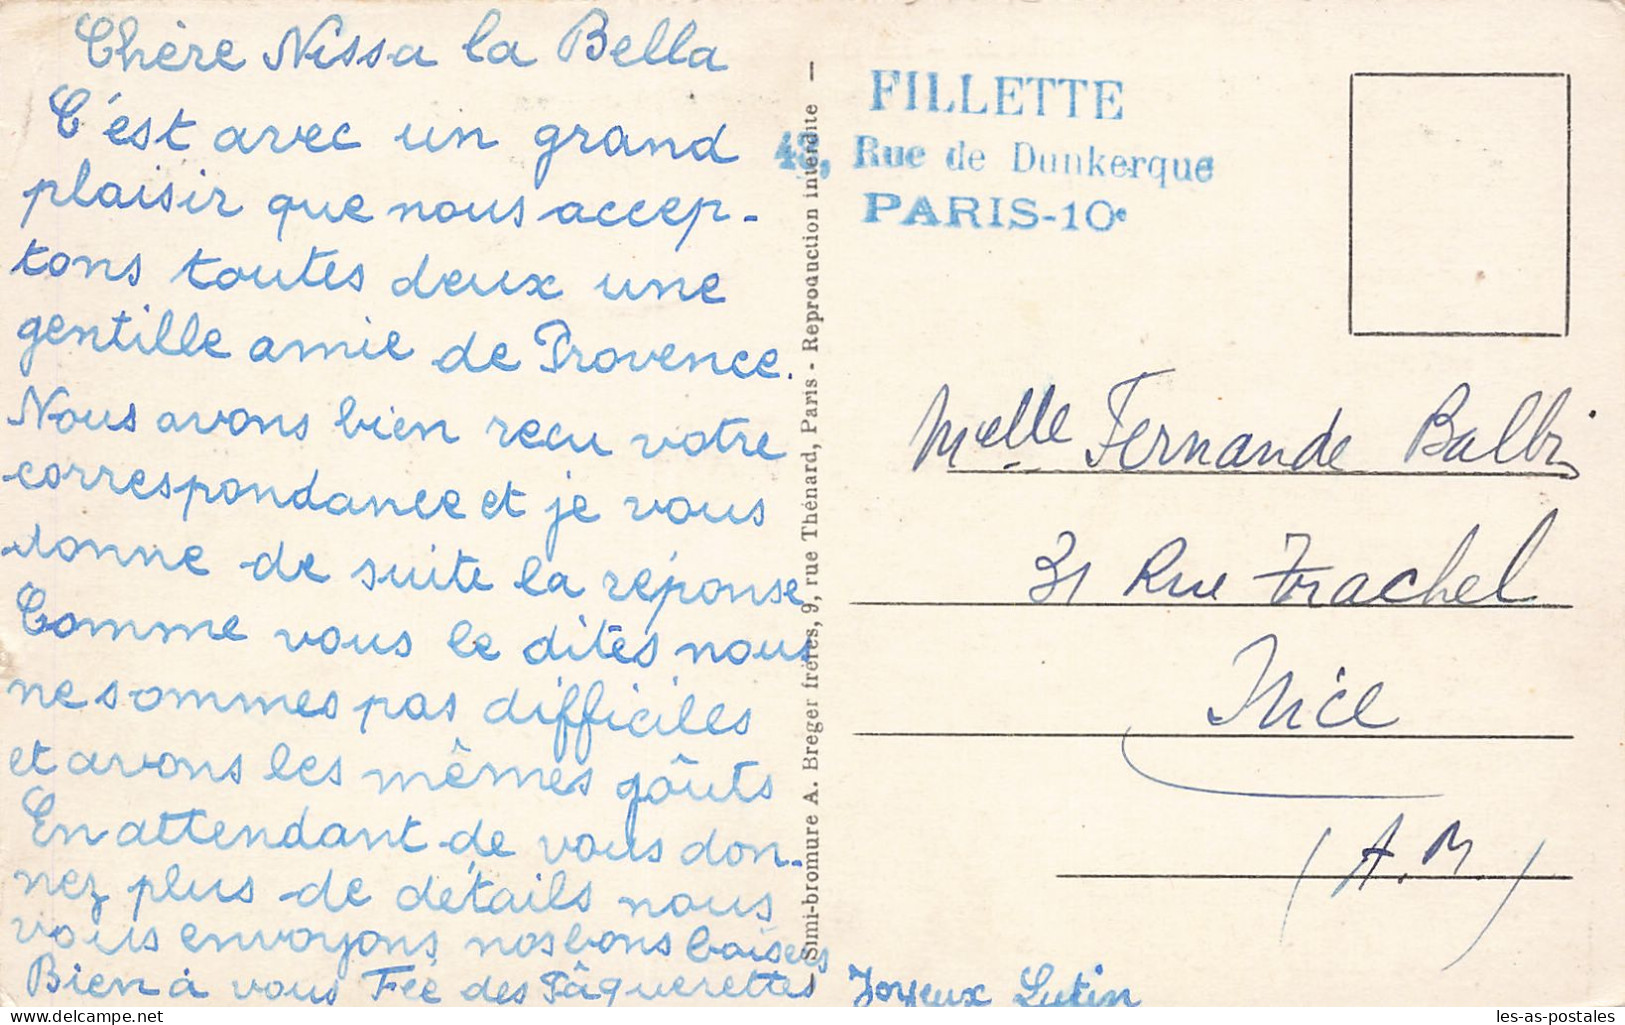 Chère Nissa la Bella
C'est avec un grand
plaisir que nous accep-
tons toutes deux une
gentille amie de Provence.
Nous avons bien recu votre
correspondance et je vous
donne de suite la réponse
Comme vous le dites nous
ne sommes pas difficiles
et avons les mêmes goûts
En attendant de vous don-
nez plus de détails nous
vous envoyons nos bons baisers
Bien à vous Fée des Pâquerettes Joyeux Lutin
Simi-bromure A. Breger frères, 9, rue Thénard, Paris - Reproduction interdite -
FILLETTE
43, Rue de Dunkerque
PARIS-10e
Melle Fernande Balbi
31 Rue Trachel
Nice
(A.M.)
les-as-postales
delcampe.net